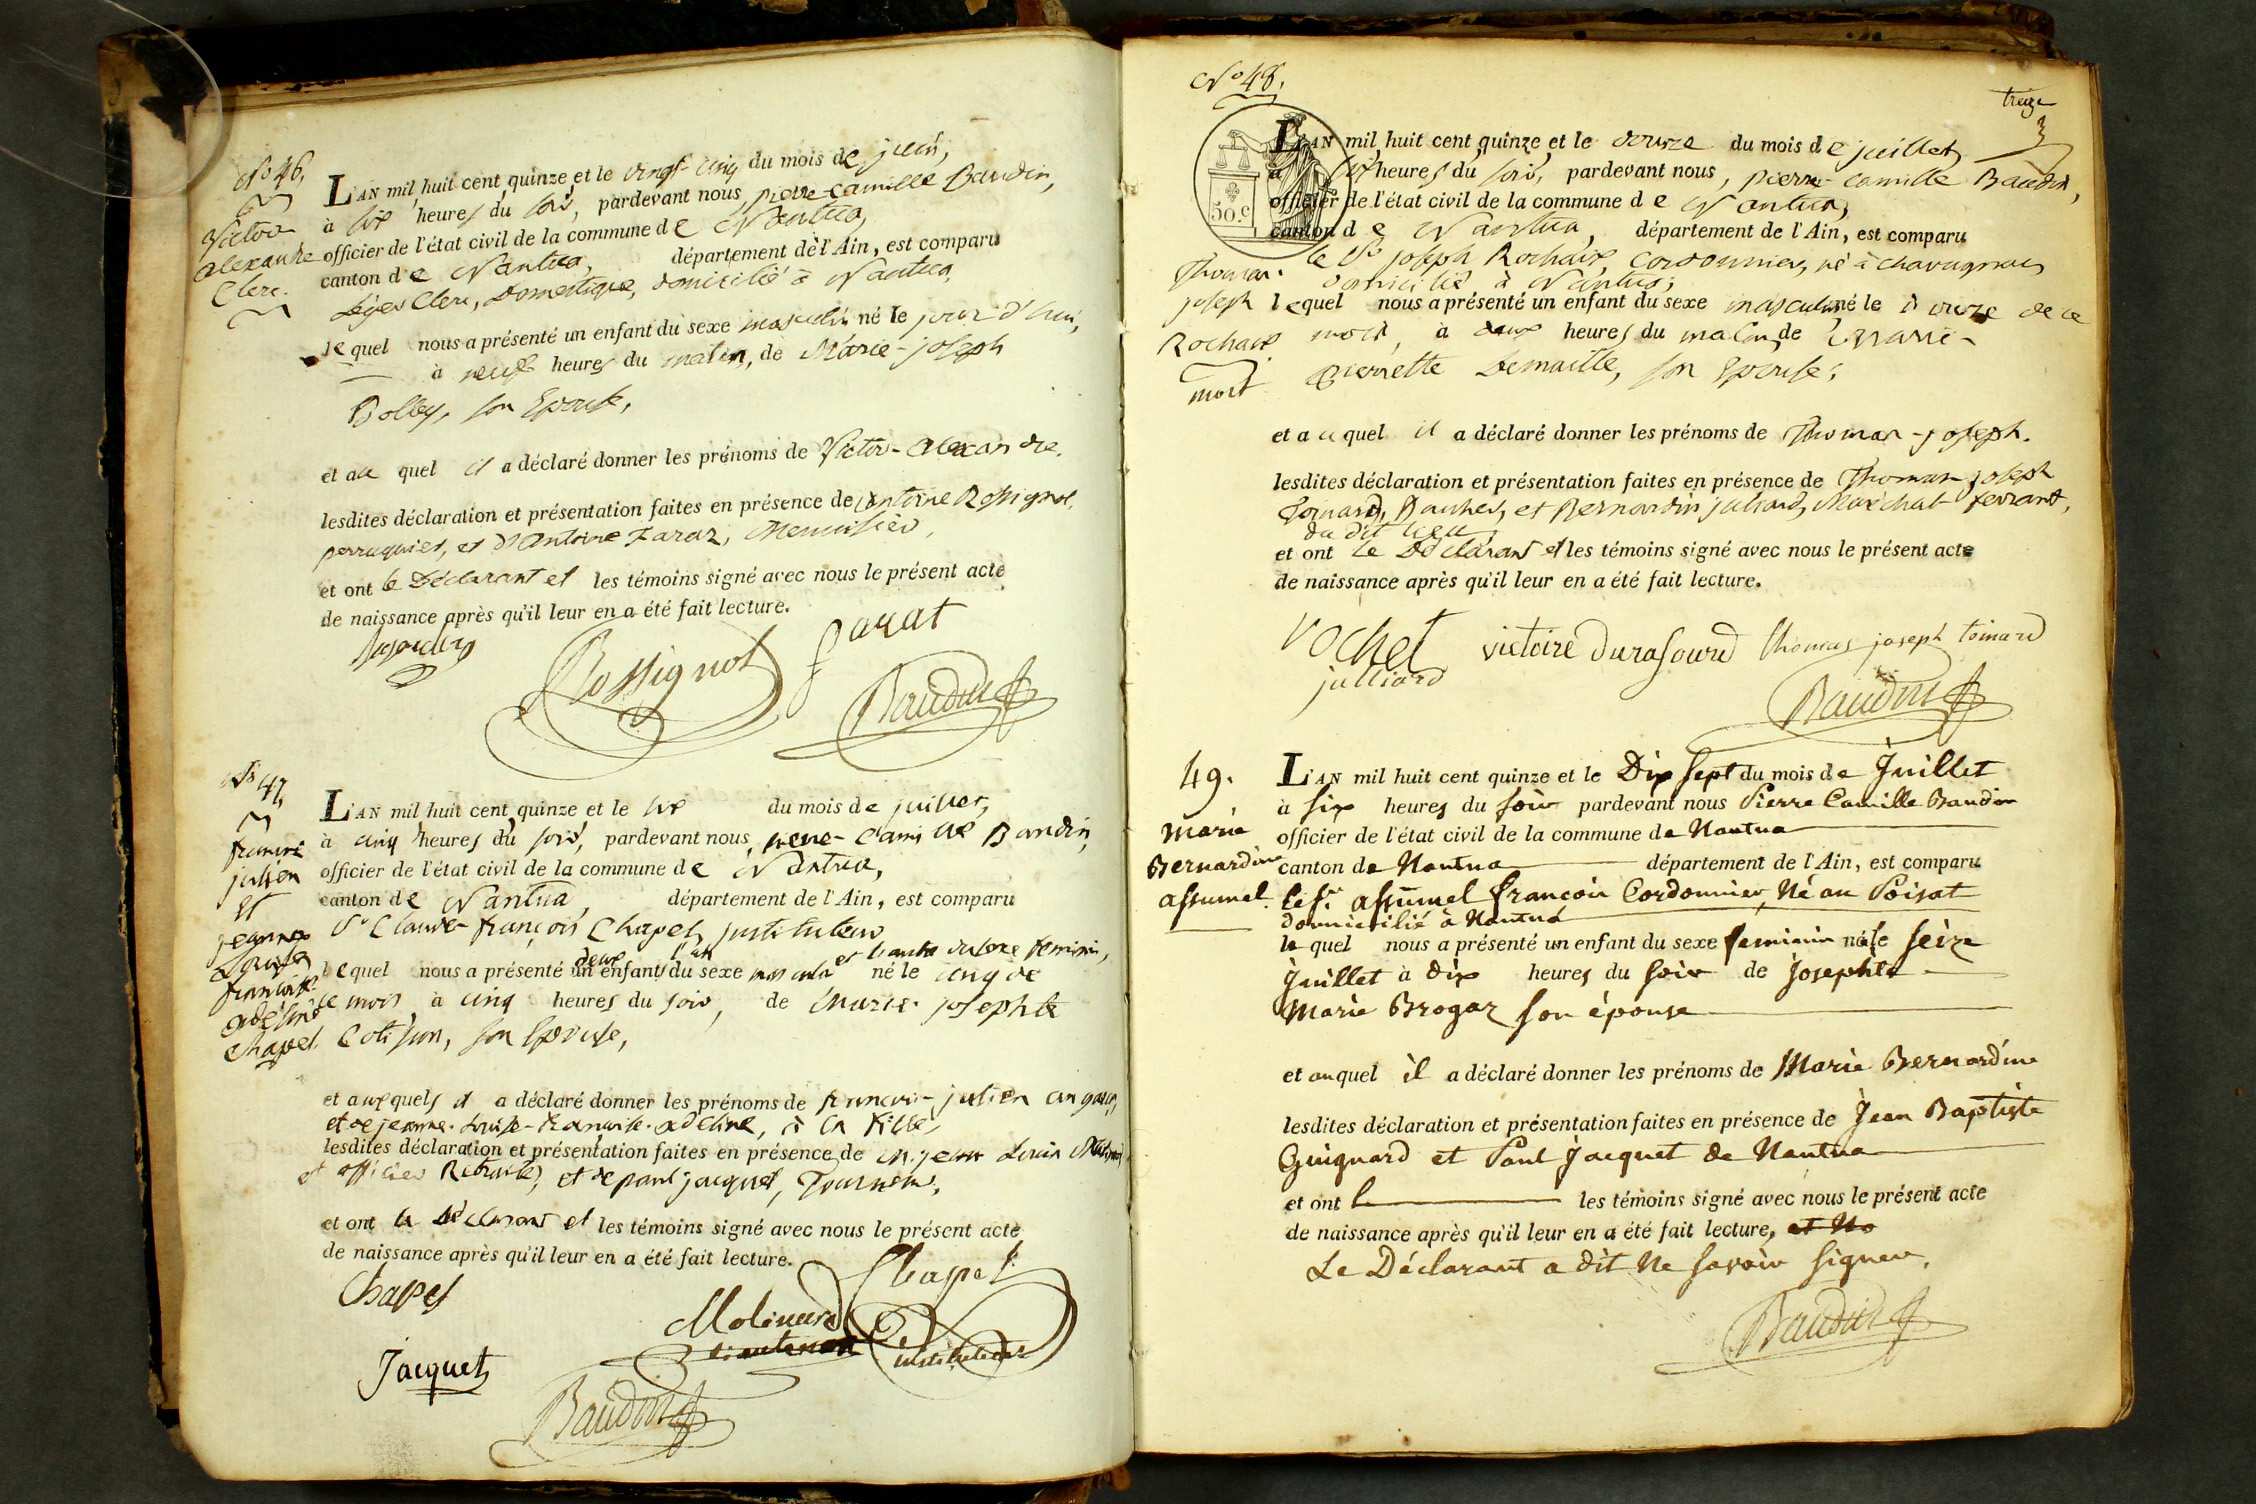 N° 46.
Victor
alexandre
Clerc.
L'AN mil huit cent quinze et le vingt-cinq du mois de juin,
à six heures du soir, pardevant nous, pierre-camille Baudin,
officier de l'état civil de la commune de Nantua,
canton de Nantua, département de l'Ain, est comparu
Clerc, Domestique, domicilié à Nantua,
lequel nous a présenté un enfant du sexe masculin né le jour d'hui,
à neuf heures du matin, de Marie-joseph
Bolley, son Epouse,
et au quel il a déclaré donner les prénoms de Victor-alexandre.
lesdites déclaration et présentation faites en présence de antoine Rossignol,
perruquier, et d'antoine Faraz, Menuisier,
et ont le Déclarant et les témoins signé avec nous le présent acte
de naissance après qu'il leur en a été fait lecture.
Rossignol
farat
Baudin
N° 47.
françois
julien
et
jeanne
Louise
françoise
adeline
Chapel.
L'AN mil huit cent quinze et le six du mois de juillet,
à cinq heures du soir, pardevant nous, pierre-camille Baudin,
officier de l'état civil de la commune de Nantua,
canton de Nantua, département de l'Ain, est comparu
Sr Claude-françois Chapel, instituteur
lequel nous a présenté un deux enfants du sexe l'un masculin et l'autre du sexe féminin, né le cinq de
ce mois, à cinq heures du soir, de Marie-josephte
Cotisson, son Epouse,
et auxquels il a déclaré donner les prénoms de françois-julien au garçon,
et de jeanne-Louise-françoise-adeline, à la fille,
lesdites déclaration et présentation faites en présence de M. jean Louis
officier Retraité, et de paul jacquet, Tourneur,
et ont le Déclarant et les témoins signé avec nous le présent acte
de naissance après qu'il leur en a été fait lecture.
Chapel
Chapel
instituteur
Molinard
Lieutenant
Jacquet
Baudin
N° 48.
treize
50.c
Thomas-
joseph
Rochaix
mort
L'AN mil huit cent quinze et le douze du mois de juillet
à six heures du soir, pardevant nous, pierre-camille Baudin,
officier de l'état civil de la commune de Nantua,
canton de Nantua, département de l'Ain, est comparu
le Sr joseph Rochaix, cordonnier, né à
domicilié à Nantua;
lequel nous a présenté un enfant du sexe masculin né le douze de ce
mois, à deux heures du matin, de Marie-
pierrette Demaille, son Epouse;
et au quel il a déclaré donner les prénoms de Thomas-joseph.
lesdites déclaration et présentation faites en présence de Thomas-joseph
et Bernardin julliard, Maréchal ferrant,
du dit lieu,
et ont le Déclarant et les témoins signé avec nous le présent acte
de naissance après qu'il leur en a été fait lecture.
rochet victoire Durafourd thomas joseph toinard
julliard
Baudin
49.
Marie
Bernardine
assumel.
L'AN mil huit cent quinze et le Dix sept du mois de Juillet
à six heures du soir pardevant nous Pierre Camille Baudin
officier de l'état civil de la commune de Nantua
canton de Nantua département de l'Ain, est comparu
le Sr. assumel françois Cordonnier, Né au Poisat
domicilié à Nantua
le quel nous a présenté un enfant du sexe feminin né le seize
Juillet à dix heures du soir de Josephte
Marie Brogaz son épouse
et auquel il a déclaré donner les prénoms de Marie Bernardine
lesdites déclaration et présentation faites en présence de Jean Baptiste
Guignard et Paul Jacquet de Nantua
et ont les témoins signé avec nous le présent acte
de naissance après qu'il leur en a été fait lecture, et No
Le Déclarant a dit Ne savoir signer.
Baudin